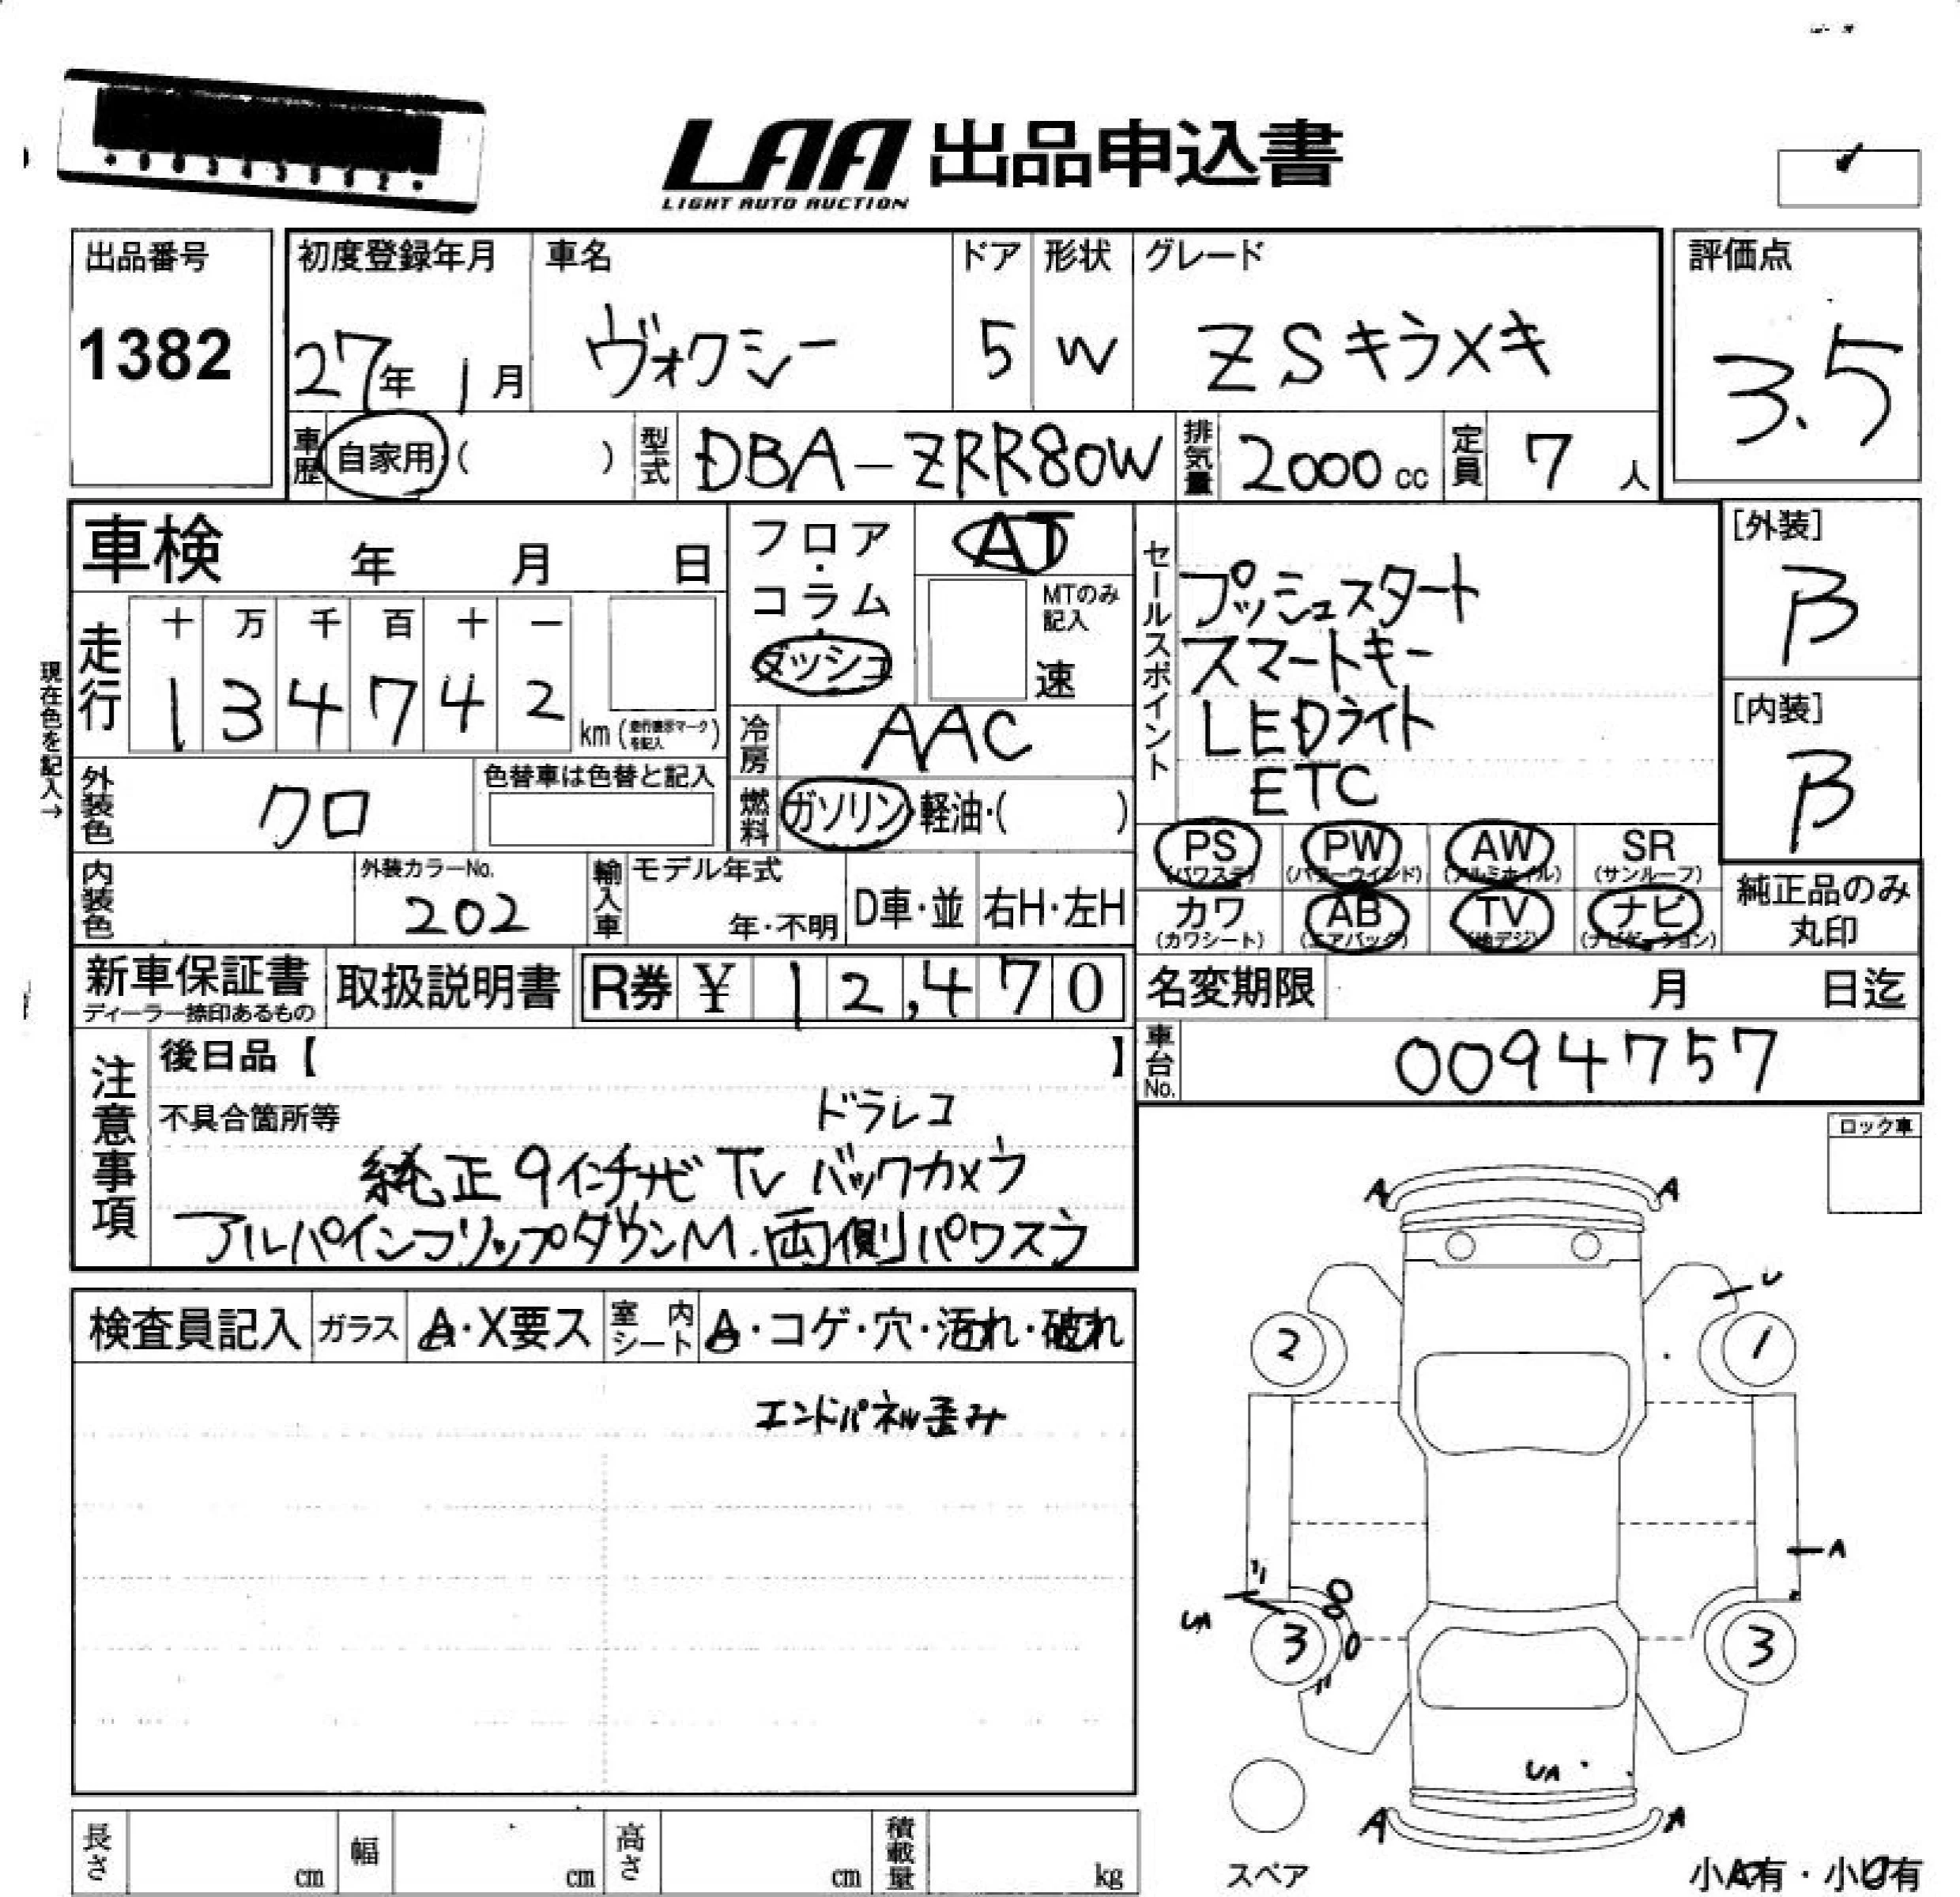 LAA 出品申込書
LIGHT AUTO AUCTION
出品番号
1382
初度登録年月
27年 1月
車名
ヴォクシー
ドア
5
形状
W
グレード
ZSキラメキ
評価点
3.5
車歴 自家用 ( )
型式 DBA-ZRR80W
排気量 2000 cc
定員 7 人
車検 年 月 日
フロア・コラム・ダッシュ
AT
MTのみ記入
速
セールスポイント
プッシュスタート
スマートキー
LEDライト
ETC
[外装]
B
[内装]
B
現在色を記入→
走行
十 万 千 百 十 一
1 3 4 7 4 2 km (走行表示マークを記入)
冷房 AAC
外装色 クロ
色替車は色替と記入
燃料 ガソリン・軽油・( )
内装色
外装カラーNo.
202
輸入車
モデル年式
年・不明
D車・並
右H・左H
PS (パワステ)
PW (パワーウインド)
AW (アルミホイル)
SR (サンルーフ)
カワ (カワシート)
AB (エアバッグ)
TV (地デジ)
ナビ (ナビゲーション)
純正品のみ
丸印
新車保証書
ディーラー捺印あるもの
取扱説明書
R券 ¥ 12,470
名変期限 月 日迄
車台No. 0094757
注意事項
後日品【 】
不具合箇所等
ドラレコ
純正9インチナビ TV バックカメラ
アルパインフリップダウンM.両側パワスラ
ロック車
検査員記入
ガラス A・X要ス
室内シート A・コゲ・穴・汚れ・破れ
エンドパネル歪み
A A
U
2 1
A
UA
3 3
UA
A A
スペア
長さ cm
幅 cm
高さ cm
積載量 kg
小A有・小U有